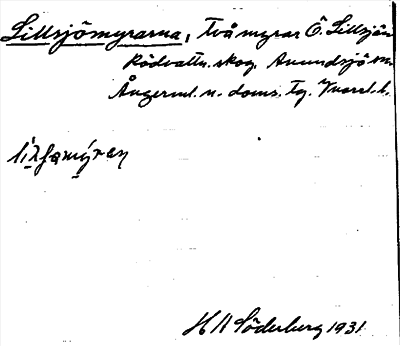 Lillsjömyrarna, Två myrar Ö. Lillsjön
Rödvattn. skog. Anundsjö sn.
Ångerml. n. doms. Tg. Kvarl. k.
H N Söderberg 1931